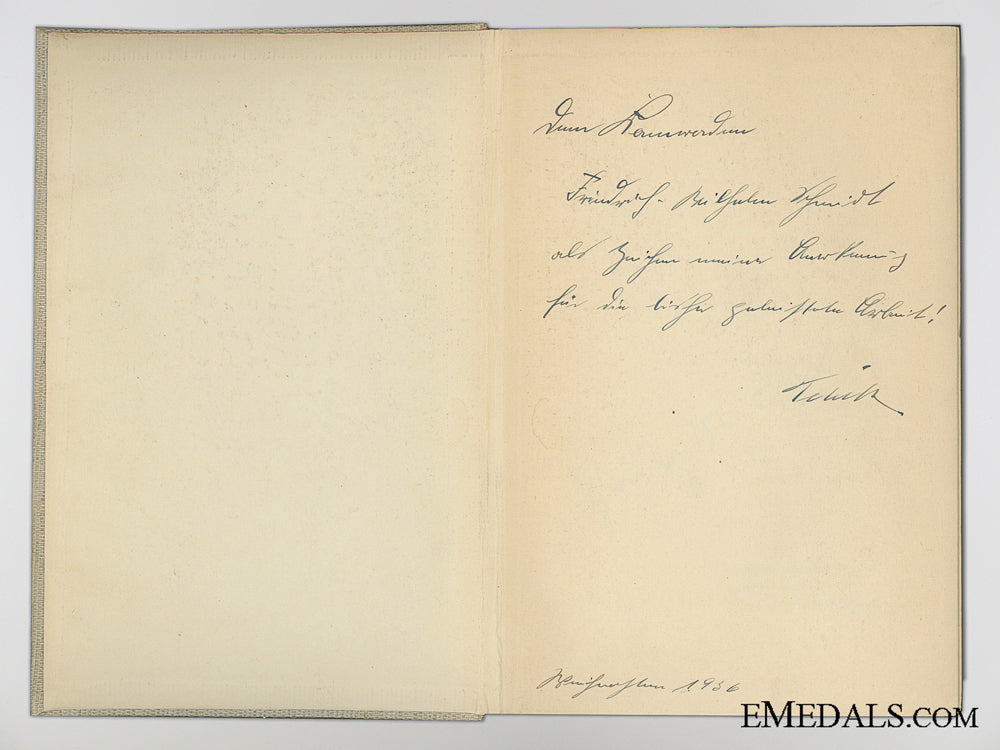 Dem Kameraden
Friedrich-Wilhelm Schmidt
als Zeichen meiner Anerkennung
für die bisher geleistete Arbeit!
Weihnachten 1936
EMEDALS.COM